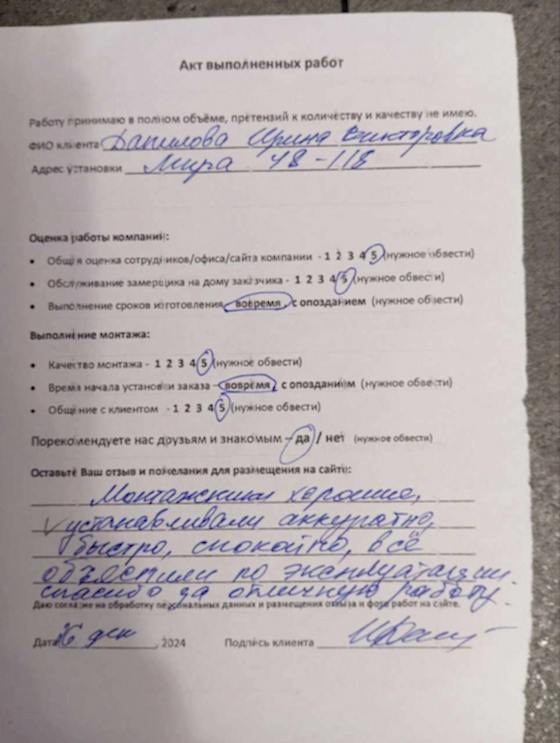 Акт выполненных работ
Работу принимаю в полном объёме, претензий к количеству и качеству не имею.
ФИО клиента Данилова Ирина Викторовна
Адрес установки Мира 48-118
Оценка работы компании:
• Общая оценка сотрудников/офиса/сайта компании - 1 2 3 4 5 (нужное обвести)
• Обслуживание замерщика на дому заказчика - 1 2 3 4 5 (нужное обвести)
• Выполнение сроков изготовления вовремя, с опозданием (нужное обвести)
Выполнение монтажа:
• Качество монтажа - 1 2 3 4 5 (нужное обвести)
• Время начала установки заказа - вовремя, с опозданием (нужное обвести)
• Общение с клиентом - 1 2 3 4 5 (нужное обвести)
Порекомендуете нас друзьям и знакомым - да / нет (нужное обвести)
Оставьте Ваш отзыв и пожелания для размещения на сайте:
Монтажники хорошие,
устанавливали аккуратно,
быстро, спокойно, всё
объяснили по эксплуатации.
спасибо за отличную работу.
Даю согласие на обработку персональных данных и размещения отзыва и фото работ на сайте.
Дата 16 дек, 2024 Подпись клиента